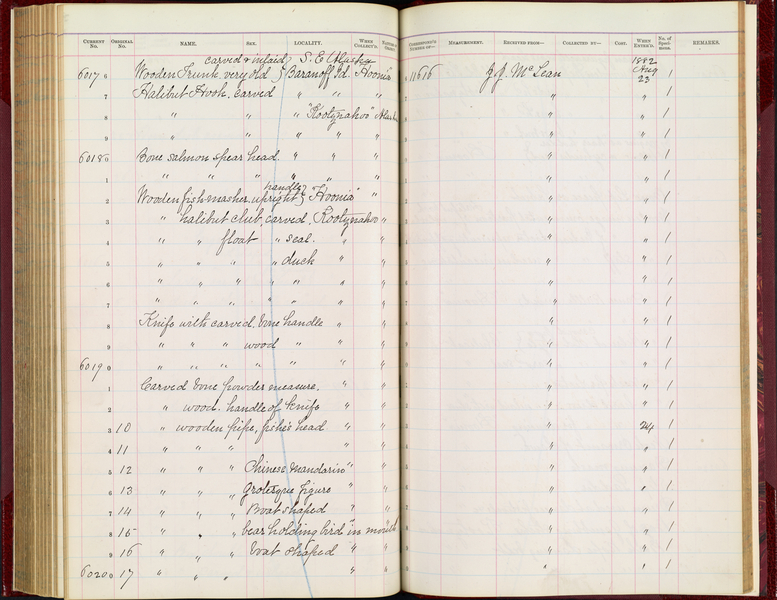 CURRENT No. ORIGINAL No. NAME. SEX. LOCALITY. WHEN COLLECT'D. NATURE OF MEASUREMENT. RECEIVED FROM— COLLECTED BY— COST. WHEN ENTER'D. No. of Speci-mens. REMARKS.
carved & inlaid S. E. Alaska 1882
6017 6 Wooden Trunk, very old } Baranoff Id. Hoonia 11616 J. J. McLean Aug 23 1
7 Halibut Hook, carved " " " " " 1
8 " " " "Kootznahoo" Alaska " " 1
9 " " " " " " " 1
6018 0 Bone salmon spear head. " " " " " 1
1 " " " " " " " " 1
handle
2 Wooden fish-masher, upright } "Hoonia" " " " 1
3 " halibut club, carved, Kootznahoo " " " 1
4 " " float " seal. " " " " 1
5 " " " " duck " " " 1
6 " " " " " " " " 1
7 " " " " " " " " 1
8 Knife with carved bone handle " " " 1
9 " " " wood " " " " 1
6019 0 " " " " " " " " 1
1 Carved bone powder measure, " " " " 1
2 " wood handle of knife " " " " 1
3 10 " wooden pipe, fishe's head " " " 24 1
4 11 " " " " " " " 1
5 12 " " " Chinese Mandarin " " " 1
6 13 " " " Grotesque figure " " " 1
7 14 " " " Boat shaped " " " 1
8 15 " " " bear holding bird in mouth " " 1
9 16 " " " boat shaped " " " 1
6020 0 17 " " " " " " " 1